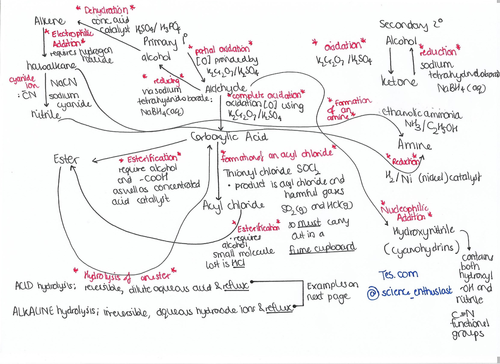 * Dehydration *
conc acid
catalyst H₂SO₄/H₃PO₄
Alkene
* Electrophilic
Addition *
requires hydrogen
halide
haloalkane
cyanide
ion
:C̄N
NaCN
sodium
cyanide
nitrile
Primary 1°
alcohol
* partial oxidation *
[O] provided by
K₂Cr₂O₇/H₂SO₄
* reducing *
via sodium
tetrahydridoborate;
NaBH₄(aq)
Aldehyde
* complete oxidation *
oxidation [O] using
K₂Cr₂O₇/H₂SO₄
* oxidation *
K₂Cr₂O₇/H₂SO₄
Secondary 2°
Alcohol
* reduction *
sodium
tetrahydridoborate
NaBH₄(aq)
Ketone
* Formation
of an
amine *
ethanolic ammonia
NH₃/C₂H₅OH
Amine
* Reduction *
H₂/Ni (nickel) catalyst
Carboxylic Acid
Ester
* Esterification *
require alcohol
and -COOH
as well as concentrated
acid catalyst
* formation of an acyl chloride *
Thionyl chloride SOCl₂
• product is acyl chloride and
harmful gases
SO₂(g) and HCl(g)
so must carry
out in a
fume cupboard
Acyl chloride
* Esterification *
• requires
alcohol,
small molecule
lost is HCl
* Nucleophilic
Addition *
Hydroxynitrile
(cyanohydrins)
contains
both
hydroxyl
-OH and
nitrile
C≡N
functional
groups
* Hydrolysis of an ester *
ACID hydrolysis: reversible, dilute aqueous acid & reflux
ALKALINE hydrolysis; irreversible, aqueous hydroxide ions & reflux
Examples on
next page
Tes.com
@science_enthusiast